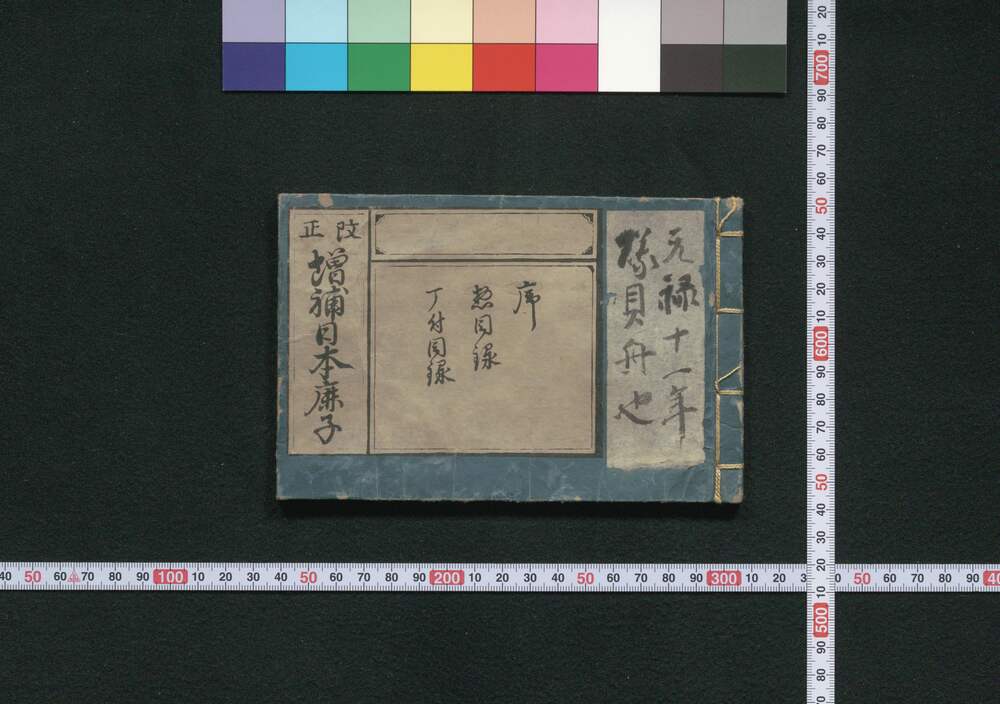 元禄十一年
貝舟也
序
惣目録
丁付目録
改正
増補日本鹿子
20
10
700
90
80
70
60
50
40
30
20
10
600
90
80
70
60
50
40
30
20
10
500
90
80
70
40 50 60 70 80 90 100 10 20 30 40 50 60 70 80 90 200 10 20 30 40 50 60 70 80 90 300 10 20 3 50 60 70 80 90 40